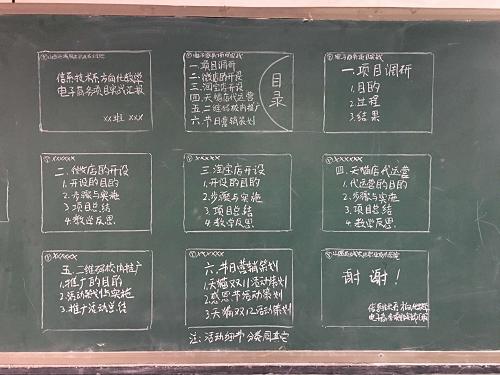 信系技术系方向化教学
电子商务项目实战汇报
XX班 XXX
电子商务项目实战
一.项目调研
二.微店的开设
三.淘宝店开设
四.天猫店代运营
五.二维码校内推广
六.节日营销策划
目录
一.项目调研
1.目的
2.过程
3.结果
XXXXXX
二.微店的开设
1.开设的目的
2.步骤与实施
3.项目总结
4.教学反思
XXXXXX
三.淘宝店开设
1.开设的目的
2.步骤与实施
3.项目总结
4.教学反思
XXXXXX
四.天猫店代运营
1.代运营的目的
2.步骤与实施
3.项目总结
4.教学反思
XXXXXX
五.二维码校内推广
1.推广的目的
2.活动策划与实施
3.推广活动总结
XXXXXX
六.节日营销策划
1.天猫双11活动策划
2.感恩节活动策划
3.天猫双12活动策划
谢谢!
注:活动细节分类同其它